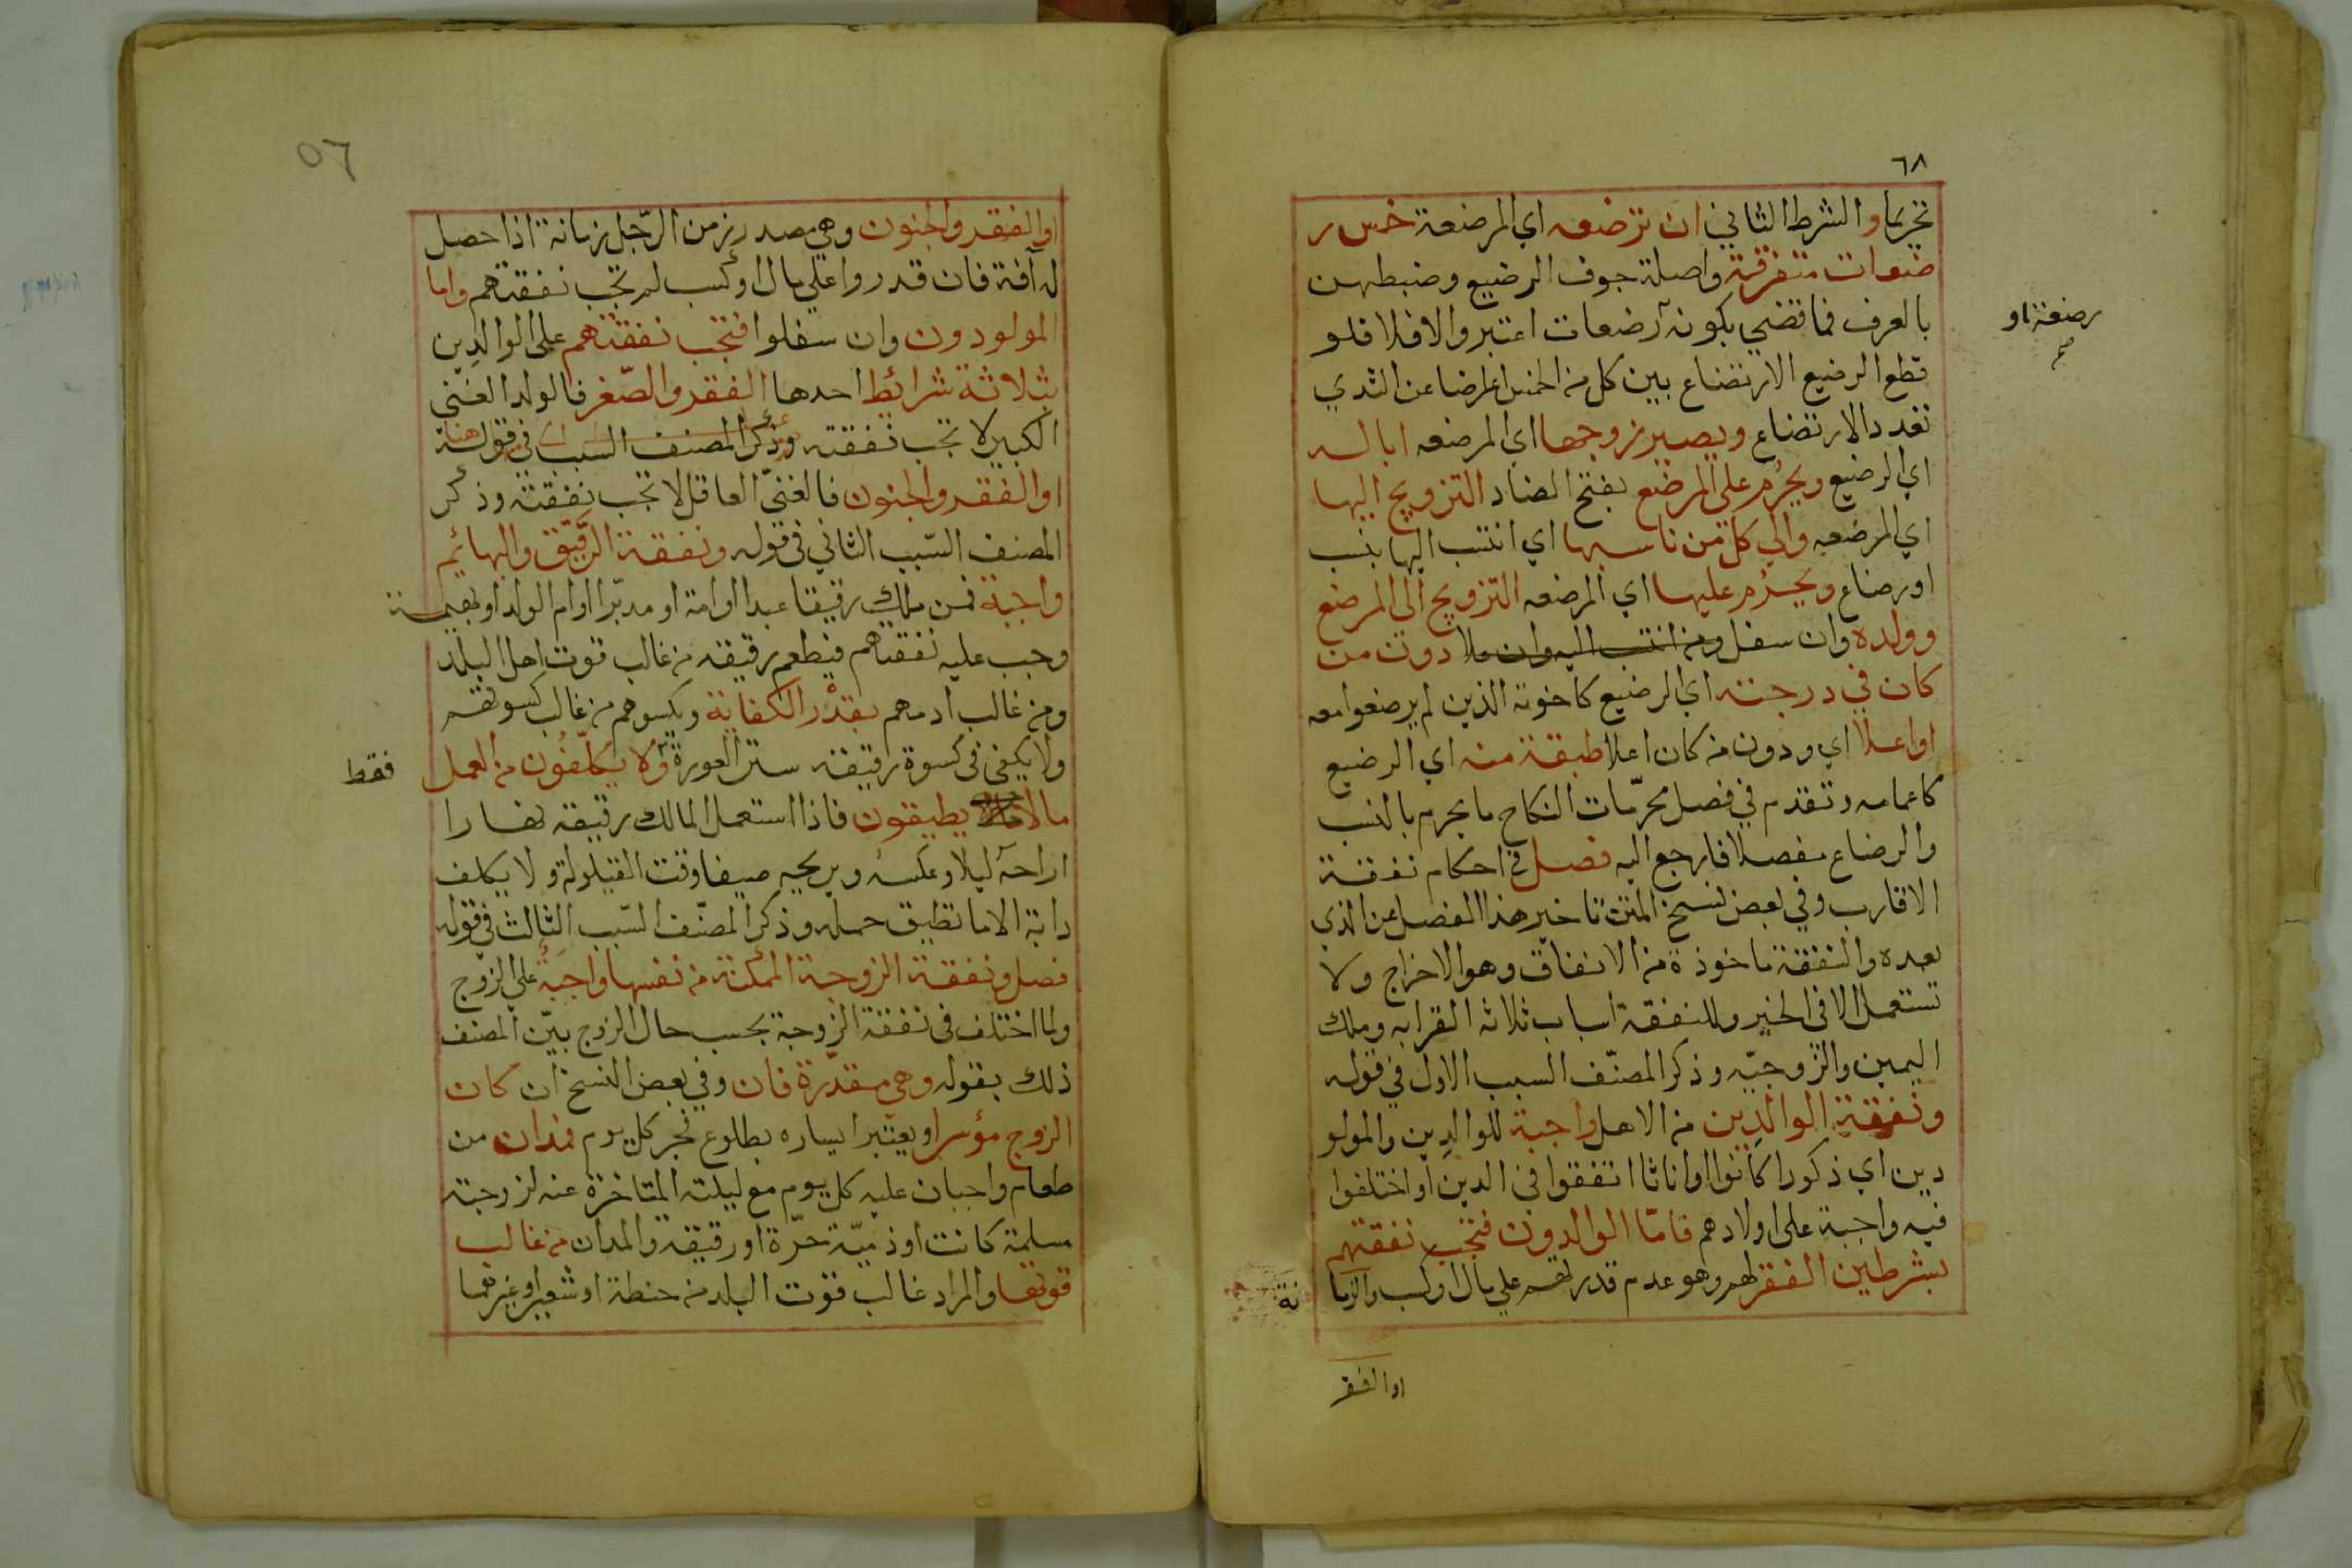 ٦٨
تحريما والشرط الثاني ان ترضعه اي المرضعة خمس ر
ضعات متفرقة واصلة جوف الرضيع وضبطهن
بالعرف فما قضي بكونه رضعات اعتبر والا فلا فلو
رضعة او
صح
قطع الرضيع الارتضاع بين كل من الخمس اعراضا عن الثدي
تعدد الارتضاع ويصير زوجها اي المرضعه ابا له
اي الرضيع ويحرُم على المرضع بفتح الضاد التزويج اليها
اي المرضعه والي كل من ناسبها اي انتسب اليها بنسب
او رضاع ويحرُم عليها اي المرضعه التزويج الى المرضع
وولده وان سفل ومن انتسب اليه وان علا دون من
كان في درجته اي الرضيع كاخوته الذين لم يرضعوا معه
او اعلا اي ودون من كان اعلا طبقة منه اي الرضيع
كاعمامه وتقدم في فصل محرّمات النكاح ما يحرم بالنسب
والرضاع مفصلا فارجع اليه فصل في احكام نفقة
الاقارب وفي بعض نسخ المتن تاخير هذا الفصل عن الذي
بعده والنفقة ماخوذة من الانفاق وهو الاخراج ولا
تستعمل الا في الخير وللنفقة اسباب ثلاثه القرابه وملك
اليمين والزوجيّه وذكر المصنّف السبب الاول في قوله
ونفقة الوالدِين من الاهل واجبة للوالدِين والمولو
دين اي ذكورا كانوا او اناثا اتفقوا في الدين او اختلفوا
فيه واجبة على اولادهم فامّا الوالدون فتجب نفقتهم
بشرطين الفقر لهم وهو عدم قدرتهم علي مال او كسب والزما
نة
او الفقر
٥٦
او الفقر والجنون وهي مصدر زمن الرّجل زمانة اذا حصل
له آفة فان قدروا علي مال او كسب لم تجب نفقتهم واما
المولودون وان سفلوا فتجب نفقتهم على الوالدِين
بثلاثة شرائط احدها الفقر والصّغر فالولد الغني
الكبير لا تجب نفقته وذكر المصنف السبب في قوله
او الفقر والجنون فالغنيّ العاقل لا تجب نفقته وذكر
المصنف السّبب الثاني في قوله ونفقة الرقيق والبهائم
واجبة فمن ملك رقيقا عبدا او امة او مدبّرا او ام الولد او بهيمة
وجب عليه نفقتهم فيطعم رقيقه من غالب قوت اهل البلد
ومن غالب ادمهم بقدْر الكفاية ويكسوهم من غالب كسوتهم
ولا يكفي في كسوة رقيقه ستر العورة ولا يكلّفُون من العمل
فقط
ما لا يطيقون فاذا استعمل المالك رقيقه نهارا
اراحه ليلا وعكسه ويريحه صيفا وقت القيلولة ولا يكلف
دابة الا ما تطيق حمله وذكر المصنّف السّبب الثالث في قوله
فصل ونفقة الزوجة الممكنة من نفسها واجبة علي الزوج
ولما اختلف في نفقة الزوجة بحسب حال الزوج بيّن المصنف
ذلك بقوله وهي مقدّرة فان وفي بعض النسخ ان كان
الزوج مؤسرا ويعتبر ايساره بطلوع فجر كل يوم فمدان من
طعام واجبان عليه كل يوم مع ليلته المتاخرة عنه لزوجته
مسلمة كانت او ذميّة حرّة او رقيقة والمدان من غالب
قوتها والمراد غالب قوت البلد من حنطة او شعير او غيرهما